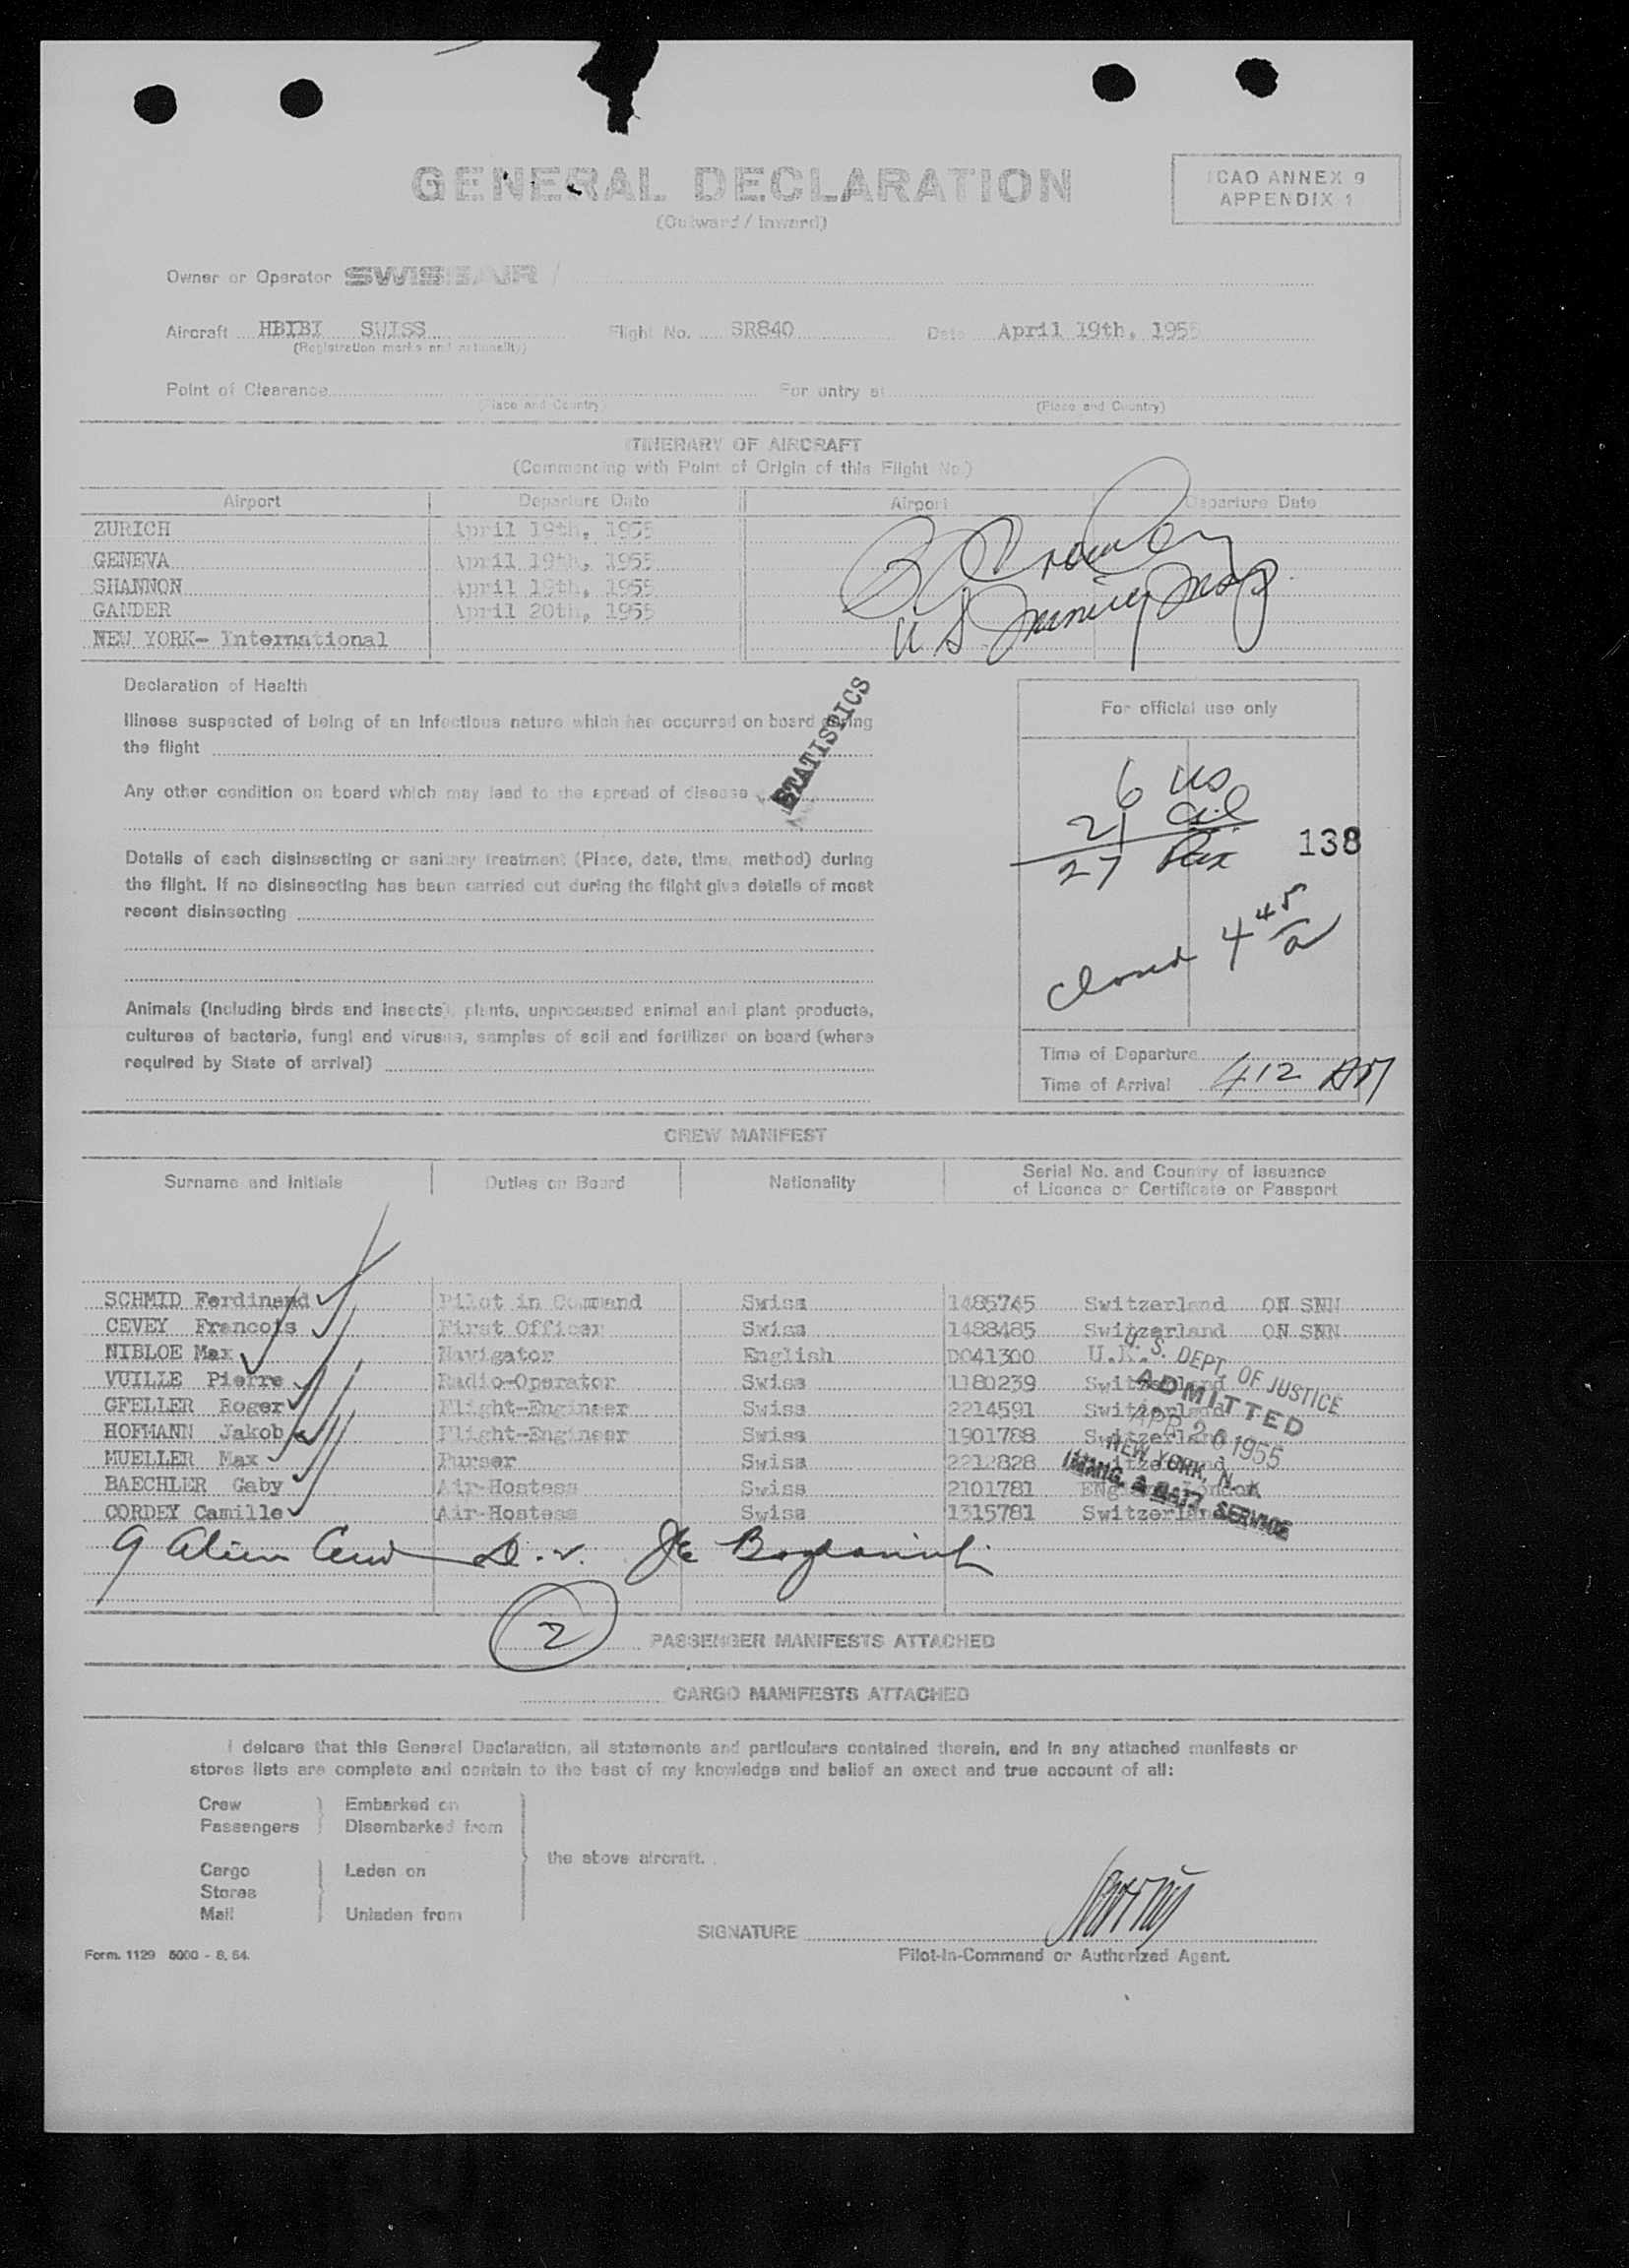 GENERAL DECLARATION
(Outward / Inward)
ICAO ANNEX 9
APPENDIX 1
Owner or Operator SWISSAIR
Aircraft HBIBI SWISS Flight No. SR840 Date April 19th, 1955
(Registration marks and nationality)
Point of Clearance For entry at
(Place and Country) (Place and Country)
ITINERARY OF AIRCRAFT
(Commencing with Point of Origin of this Flight No.)
Airport Departure Date Airport Departure Date
ZURICH April 19th, 1955
GENEVA April 19th, 1955
SHANNON April 19th, 1955
GANDER April 20th, 1955
NEW YORK- International
U.S.
Declaration of Health
Illness suspected of being of an infectious nature which has occurred on board during
the flight
STATISTICS
Any other condition on board which may lead to the spread of disease
Details of each disinsecting or sanitary treatment (Place, date, time, method) during
the flight. If no disinsecting has been carried out during the flight give details of most
recent disinsecting
Animals (including birds and insects), plants, unprocessed animal and plant products,
cultures of bacteria, fungi and viruses, samples of soil and fertilizer on board (where
required by State of arrival)
For official use only
6 US
21
27
138
Closed 4 45 a
Time of Departure
Time of Arrival 412 AM
CREW MANIFEST
Surname and Initials Duties on Board Nationality Serial No. and Country of Issuance
of Licence or Certificate or Passport
SCHMID Ferdinand Pilot in Command Swiss 1485745 Switzerland ON SNN
CEVEY Francois First Officer Swiss 1488485 Switzerland ON SNN
NIBLOE Max Navigator English D041300 U.K.
VUILLE Pierre Radio-Operator Swiss 1180239 Switzerland
GFELLER Roger Flight-Engineer Swiss 2214591 Switzerland
HOFMANN Jakob Flight-Engineer Swiss 1901788 Switzerland
MUELLER Max Purser Swiss 2212828 Switzerland
BAECHLER Gaby Air-Hostess Swiss 2101781 England London
CORDEY Camille Air-Hostess Swiss 1315781 Switzerland
U. S. DEPT. OF JUSTICE
ADMITTED
APR 20 1955
NEW YORK, N. Y.
IMMIG. & NATZ SERVICE
9 Alien Crew
2 PASSENGER MANIFESTS ATTACHED
CARGO MANIFESTS ATTACHED
I delcare that this General Declaration, all statements and particulars contained therein, and in any attached manifests or
stores lists are complete and contain to the best of my knowledge and belief an exact and true account of all:
Crew Embarked on
Passengers Disembarked from
the above aircraft.
Cargo Laden on
Stores
Mail Unladen from
SIGNATURE
Pilot-in-Command or Authorized Agent.
Form. 1129 5000 - 8. 54.